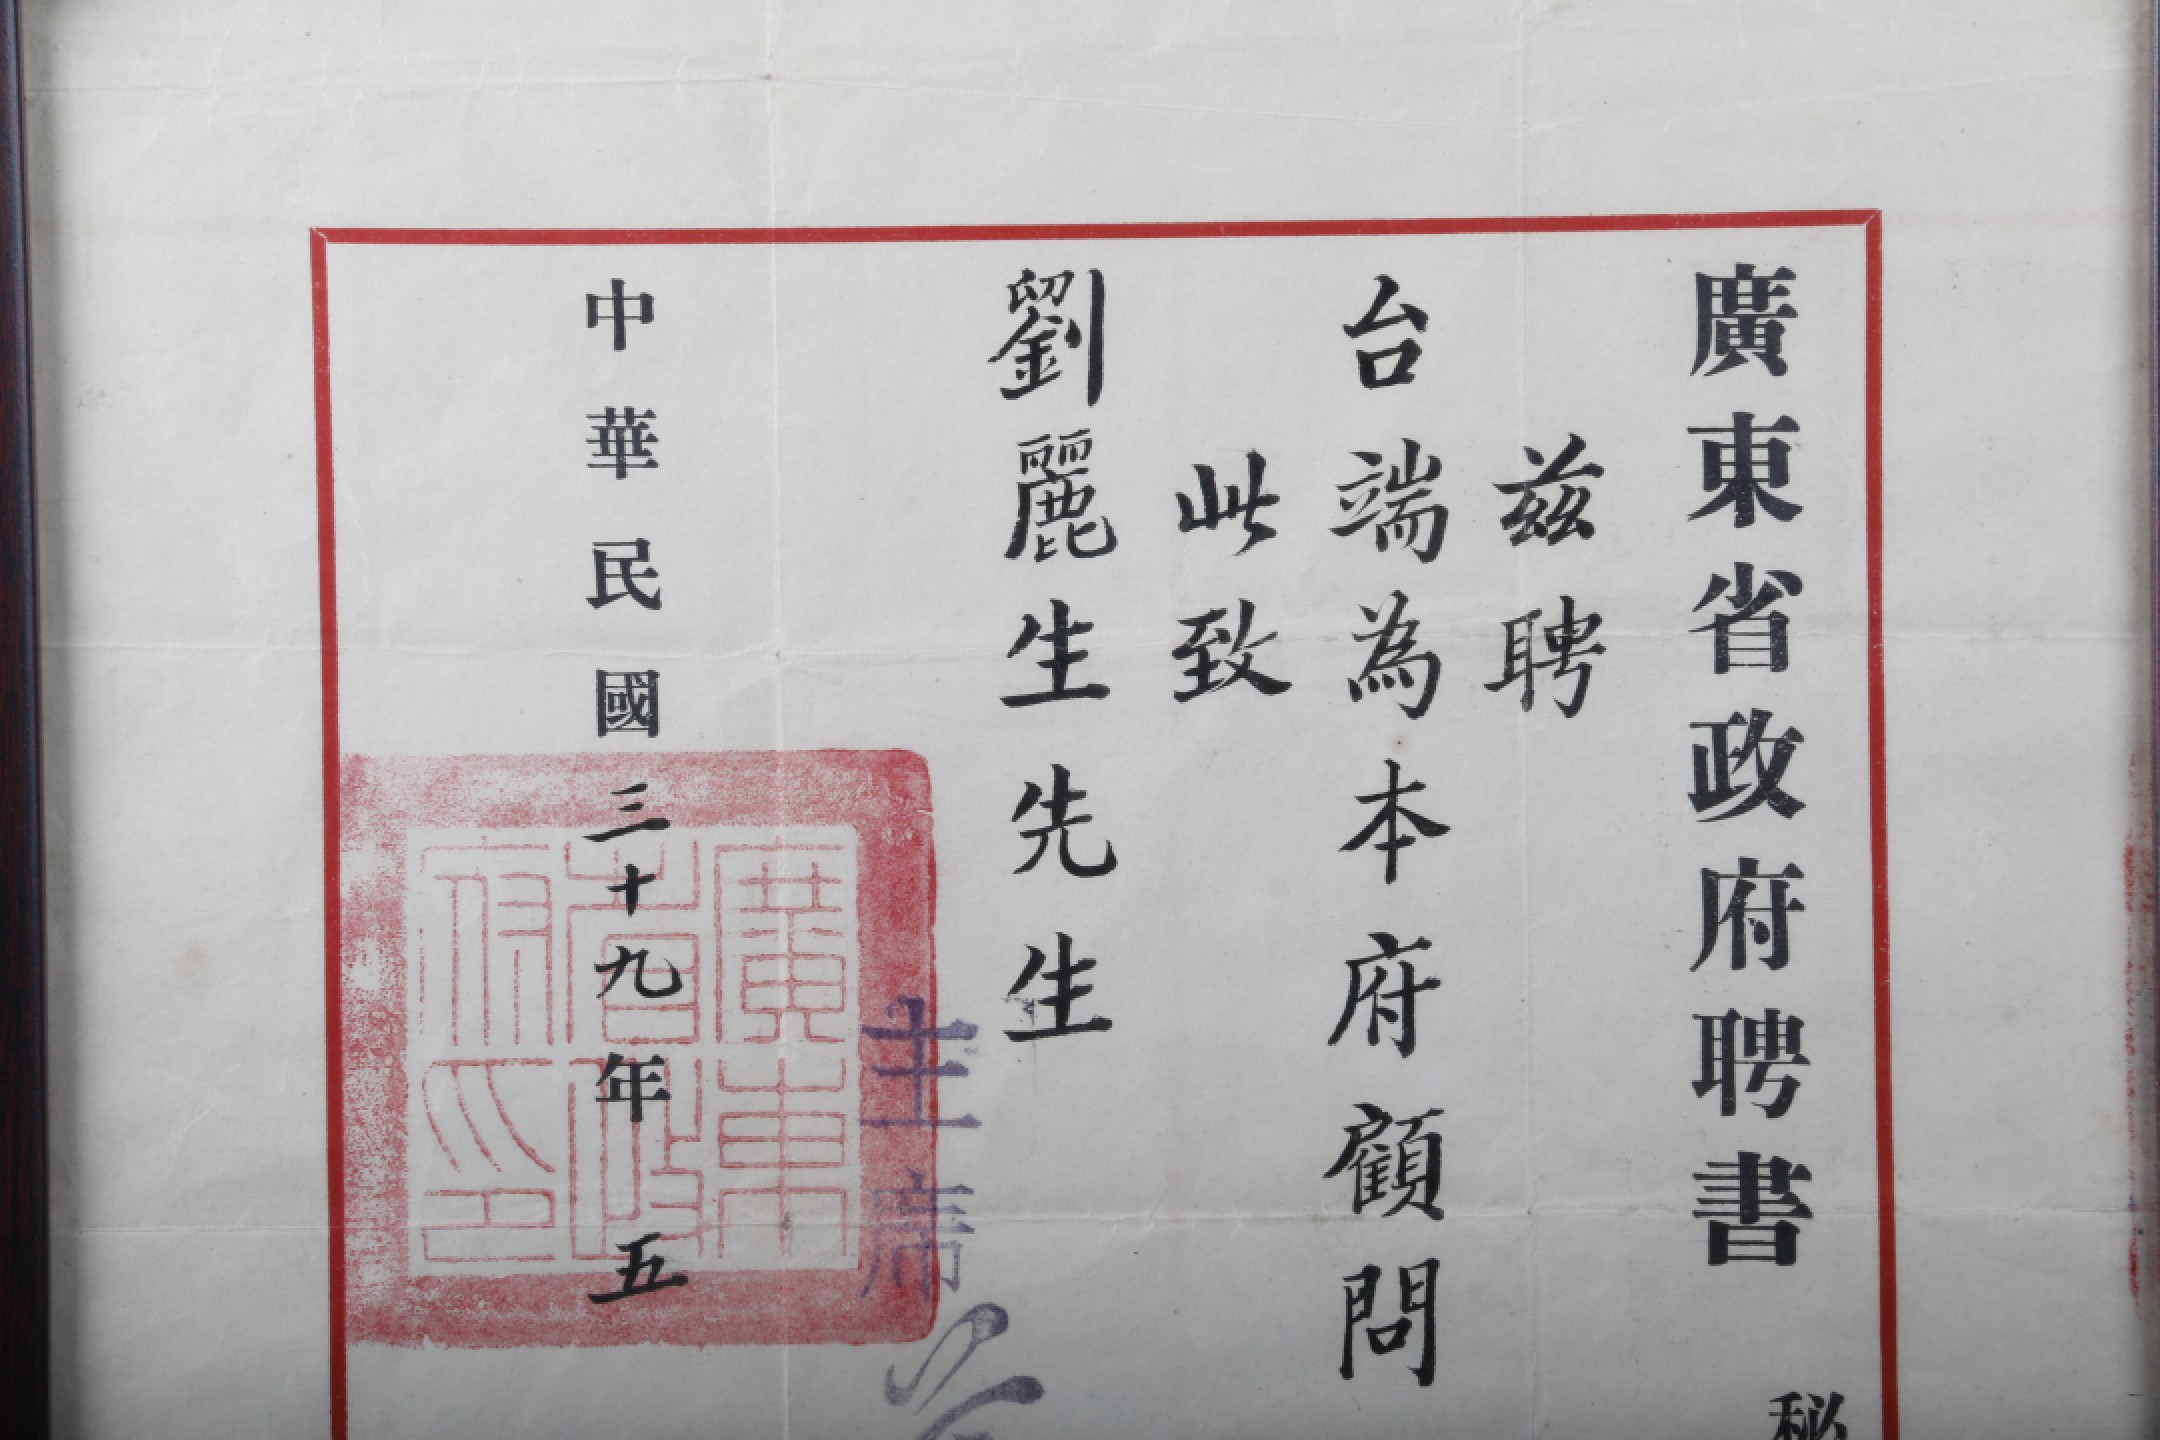 廣東省政府聘書
秘
茲聘
台端為本府顧問
此致
劉麗生先生
主席
中華民國三十九年五
廣東省政府印